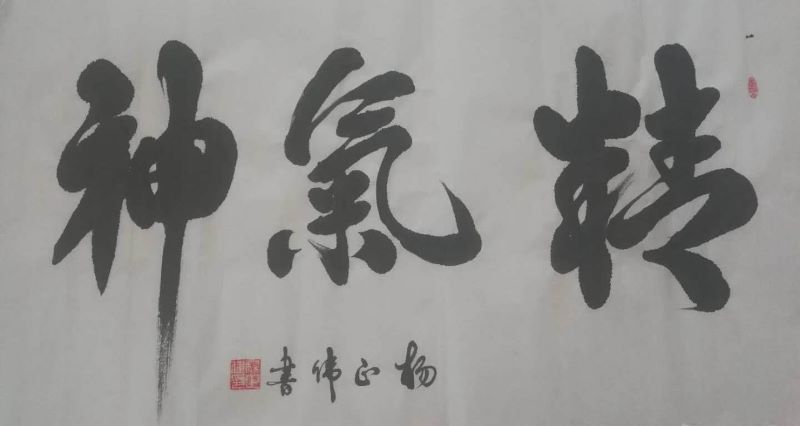 精氣神
杨正伟书